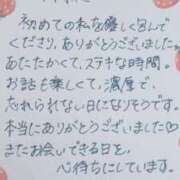 初めての私を優しく包んで
くださり、ありがとうございました。
あたたかくて、ステキな時間。
お話も楽しくて、濃厚で
忘れられない日になりそうです。
本当にありがとうございました♡
またお会いできる日を、
心待ちにしています。